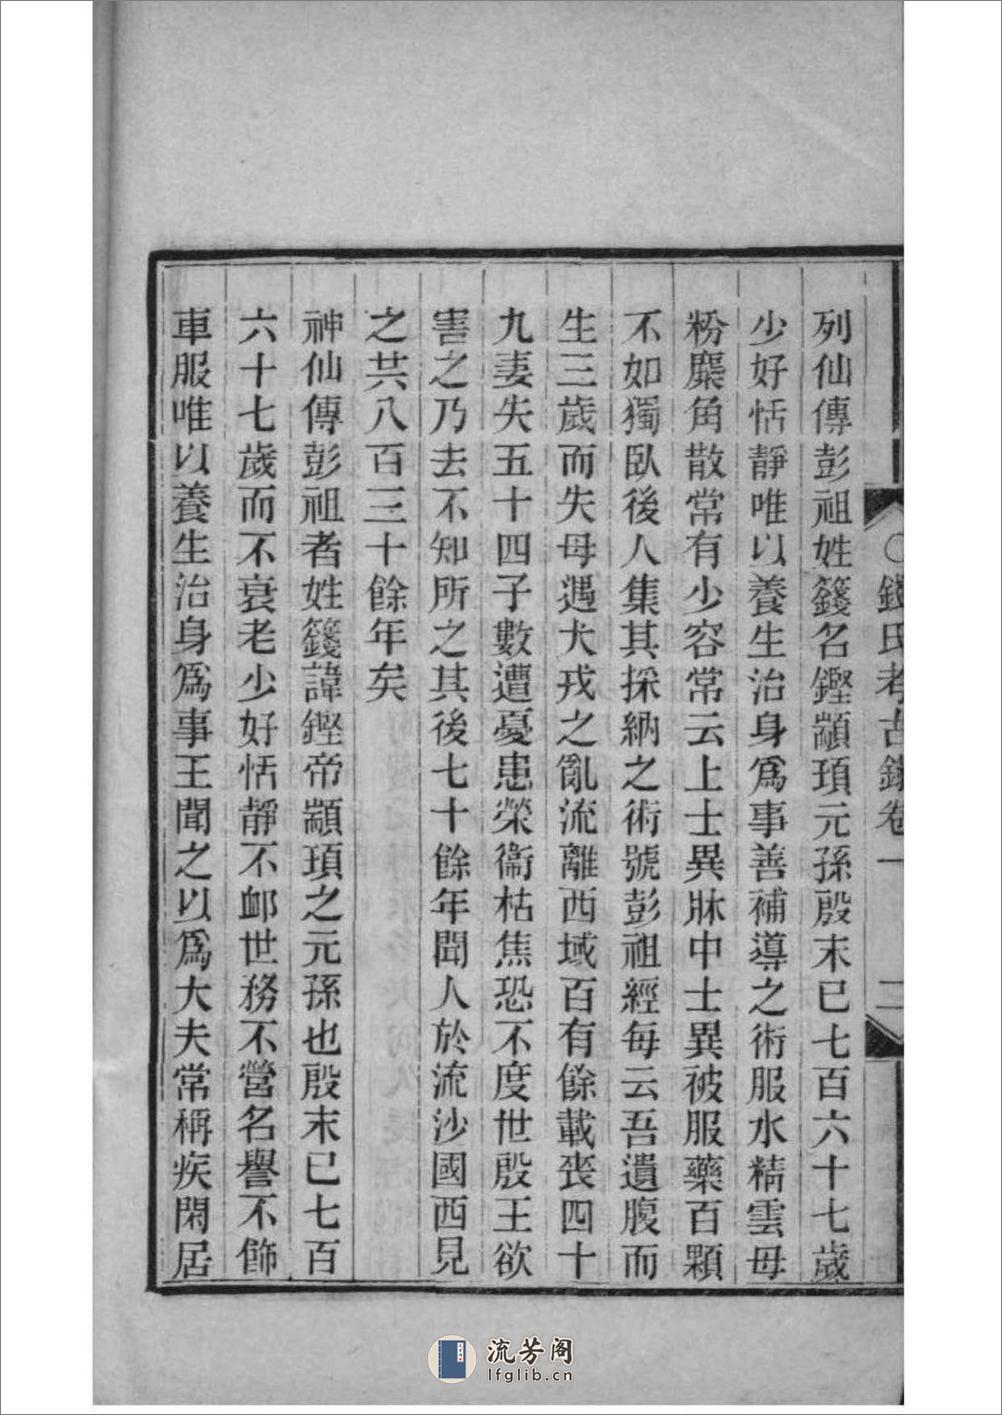 〇錢氏考古錄卷一 二
列仙傳彭祖姓籛名鏗顓頊元孫殷末已七百六十七歲
少好恬靜唯以養生治身爲事善補導之術服水精雲母
粉麋角散常有少容常云上士異牀中士異被服藥百顆
不如獨臥後人集其採納之術號彭祖經每云吾遺腹而
生三歲而失母遇犬戎之亂流離西域百有餘載喪四十
九妻失五十四子數遭憂患榮衞枯焦恐不度世殷王欲
害之乃去不知所之其後七十餘年聞人於流沙國西見
之共八百三十餘年矣
神仙傳彭祖者姓籛諱鏗帝顓頊之元孫也殷末已七百
六十七歲而不衰老少好恬靜不卹世務不營名譽不飾
車服唯以養生治身爲事王聞之以爲大夫常稱疾閑居
流芳阁
lfglib.cn